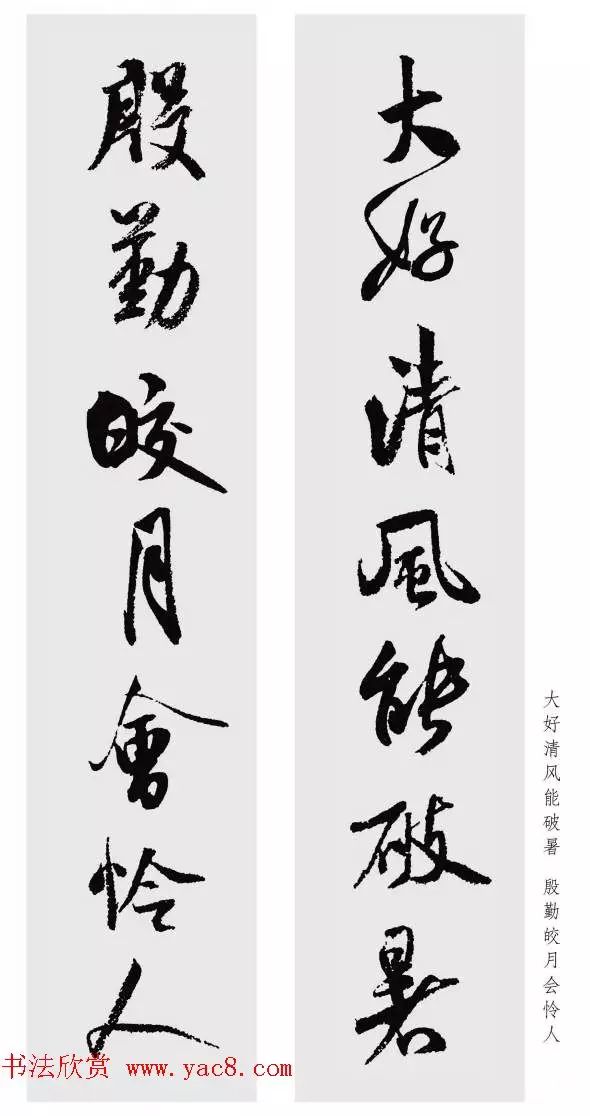 大好清風能破暑
殷勤皎月會怜人
大好清风能破暑 殷勤皎月会怜人
书法欣赏 www.yac8.com